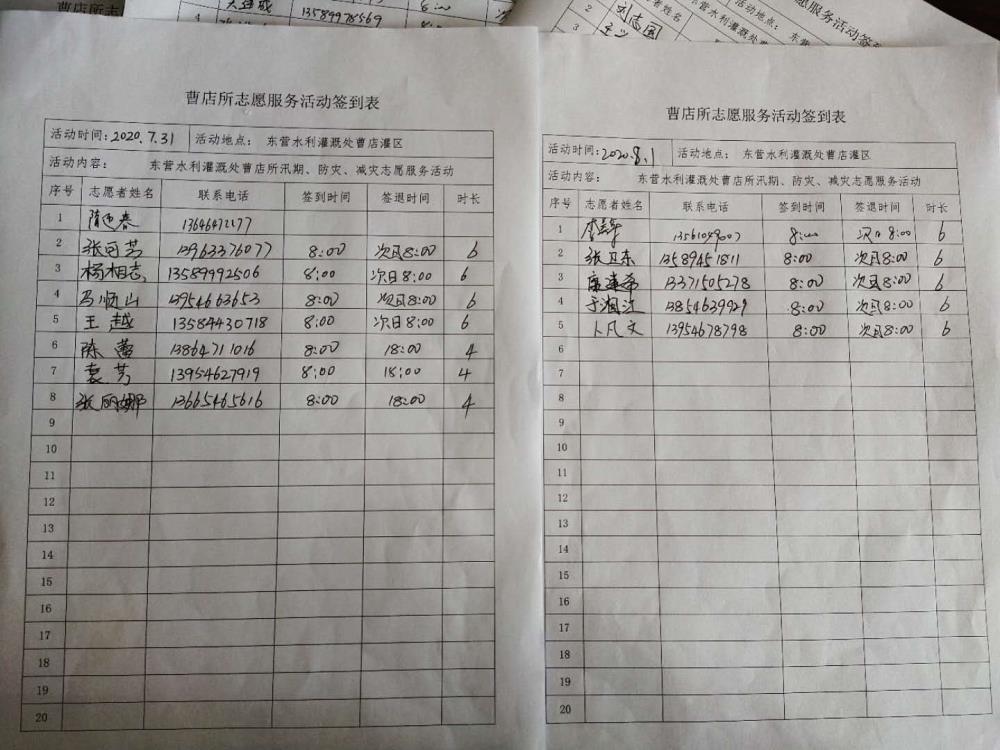 曹店所志
13589978569
8:00
志愿者姓名
2
刘志国
3
活动地点：
东营
愿服务活动签到
曹店所志愿服务活动签到表
活动时间：2020.7.31 活动地点： 东营水利灌溉处曹店灌区
活动内容： 东营水利灌溉处曹店所汛期、防灾、减灾志愿服务活动
序号 志愿者姓名 联系电话 签到时间 签退时间 时长
1 隋迎春 13646472177
2 张可芳 13963376077 8:00 次日8:00 6
3 杨相志 13589992506 8:00 次日8:00 6
4 马顺山 13954663653 8:00 次日8:00 6
5 王越 13584430718 8:00 次日8:00 6
6 陈蕾 13864711016 8:00 18:00 4
7 袁芳 13954627919 8:00 18:00 4
8 张丽娜 13665465616 8:00 18:00 4
9
10
11
12
13
14
15
16
17
18
19
20
曹店所志愿服务活动签到表
活动时间：2020.8.1 活动地点： 东营水利灌溉处曹店灌区
活动内容： 东营水利灌溉处曹店所汛期、防灾、减灾志愿服务活动
序号 志愿者姓名 联系电话 签到时间 签退时间 时长
1 8:00 次日8:00 6
2 张卫东 13589451811 8:00 次日8:00 6
3 13371505278 8:00 次日8:00 6
4 于湘江 13854639929 8:00 次日8:00 6
5 卜凡文 13954678798 8:00 次日8:00 6
6
7
8
9
10
11
12
13
14
15
16
17
18
19
20